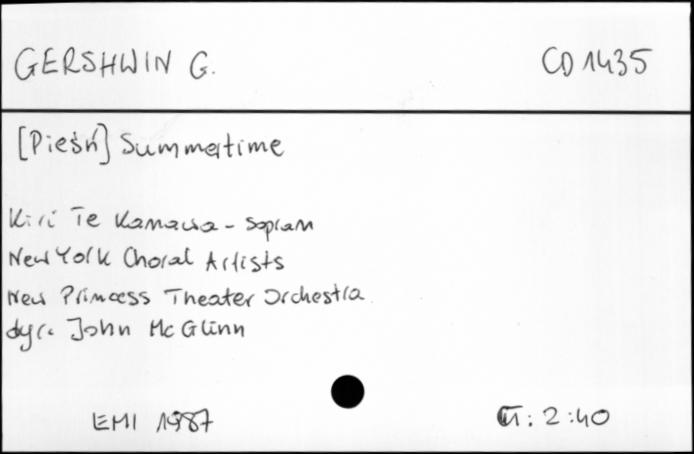 GERSHWIN G.
CD 1435
[Pieśń] Summertime
Kiri Te Kanawa - sopran
New York Choral Artists
New Princess Theater Orchestra
dyr. John McGlinn
EMI 1987
2:40